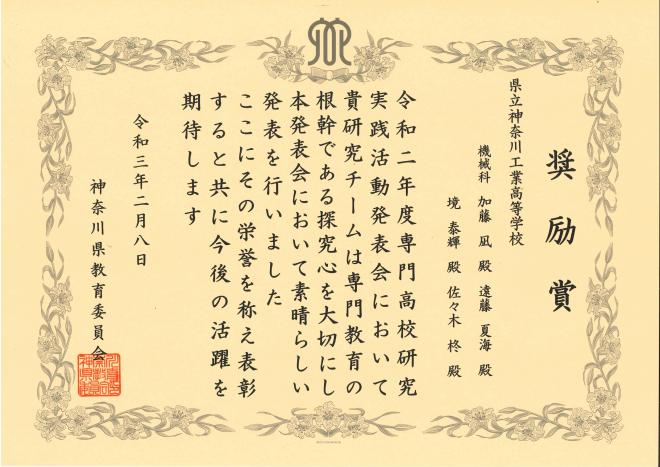 奨励賞
県立神奈川工業高等学校
機械科 加藤 凪 殿 遠藤 夏海 殿
境 泰輝 殿 佐々木 柊 殿
令和二年度専門高校研究
実践活動発表会において
貴研究チームは専門教育の
根幹である探究心を大切にし
本発表会において素晴らしい
発表を行いました
ここにその栄誉を称え表彰
すると共に今後の活躍を
期待します
令和三年二月八日
神奈川県教育委員会